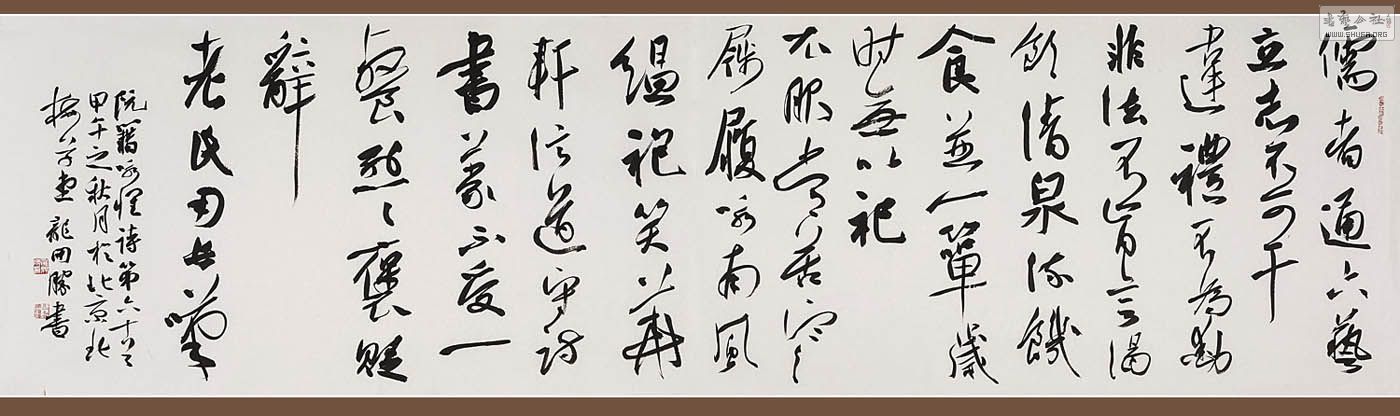 儒者通六藝
立志不可干
違禮不為動
非法不肯言渴
飲清泉流饑
食並一簞歲
時無以祀
衣服常苦寒
屣履咏南風
縕袍笑華
軒信道守詩
書義不受一
餐烈々褒貶
辭
老氏用長嘆
阮籍咏懷詩第六十
甲午之秋月於北京北
龍開勝書
WWW.SHUFA.ORG